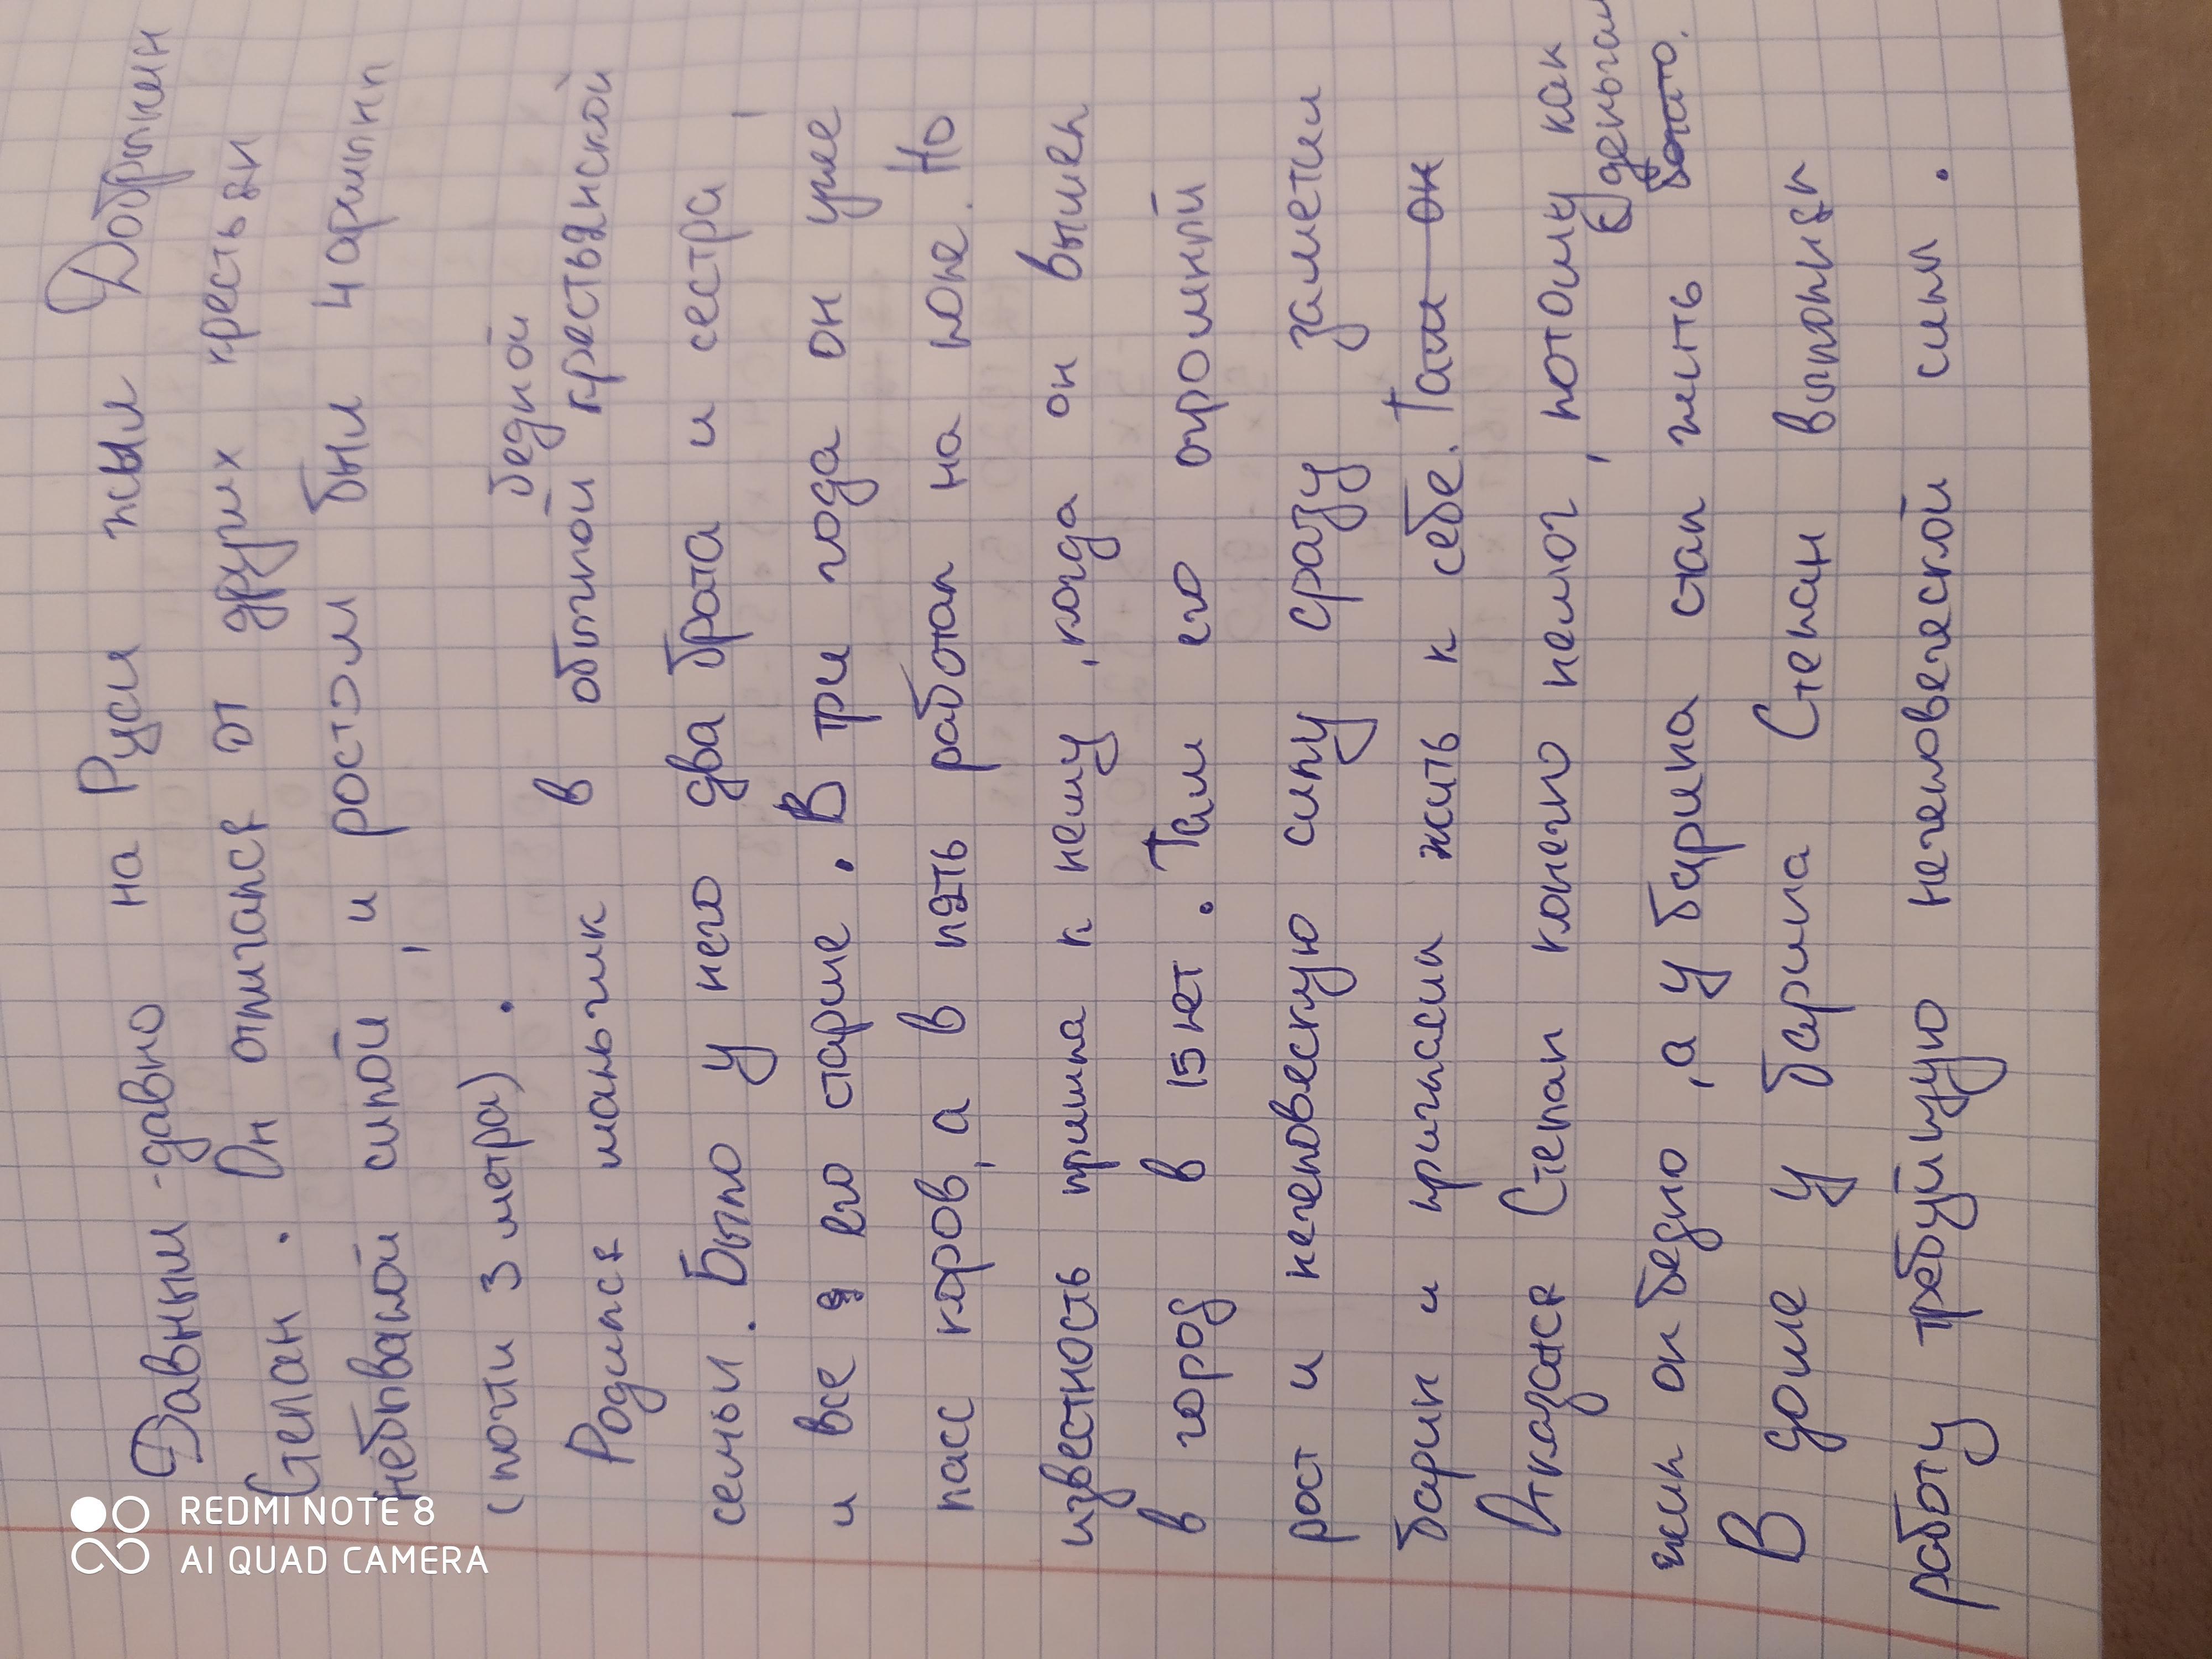 Давным-давно на Руси жыл Добрынин
Степан. Он отличался от других крестьян
небывалой силой, и ростом был 4 аршына
(почти 3 метра).
бедной
Родился мальчик в обычной крестьянской
семьи. Было у него два брата и сестра,
и все его старше. В три года он уже
пасс коров, а в пять работал на поле. Но
известность пришла к нему, когда он вышел
в город в 15 лет. Там его огромный
рост и нечеловескую силу сразу заметил
барин и пригласил жить к себе. Там он
Отказатся Степан конечно немог, потому как
жил он бедно, а у барина стал жить с деньгами
богато.
В доме у барина Степан выполнял
работу требуйщую нечеловеческой силы.
REDMI NOTE 8
AI QUAD CAMERA